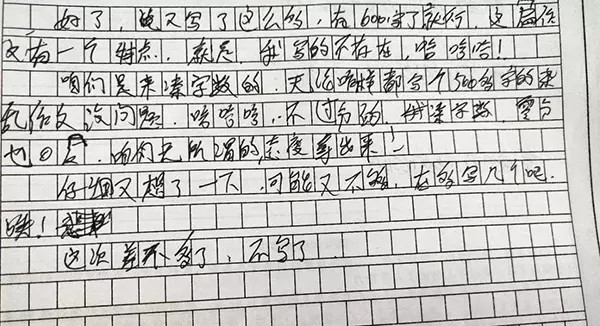 好了，也又写了这么多，有600字了就行，这篇作
文有一个特点，就是，我写的不存在，哈哈哈！
咱们是来凑字数的，无论咱样都写个500多字的来
乱给文没问题，哈哈哈，不过分的，凑字数，零分
也OK，咱们无所谓的态度拿出来！
仔细又想了一下，可能又不够，在多写几个吧.
哦！
这次差不多了，不写了